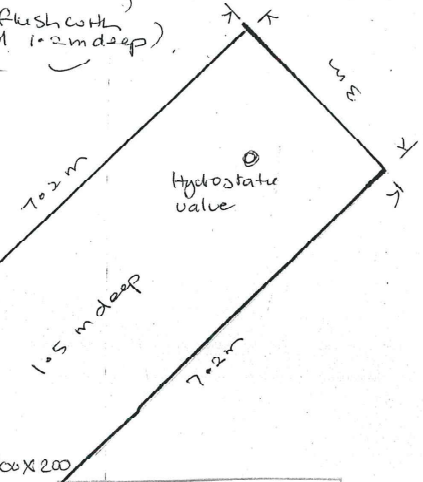 flush with
1.2m deep)
3m
7.2m
Hydrostatic
valve
1.5 m deep
7.2m
00X200